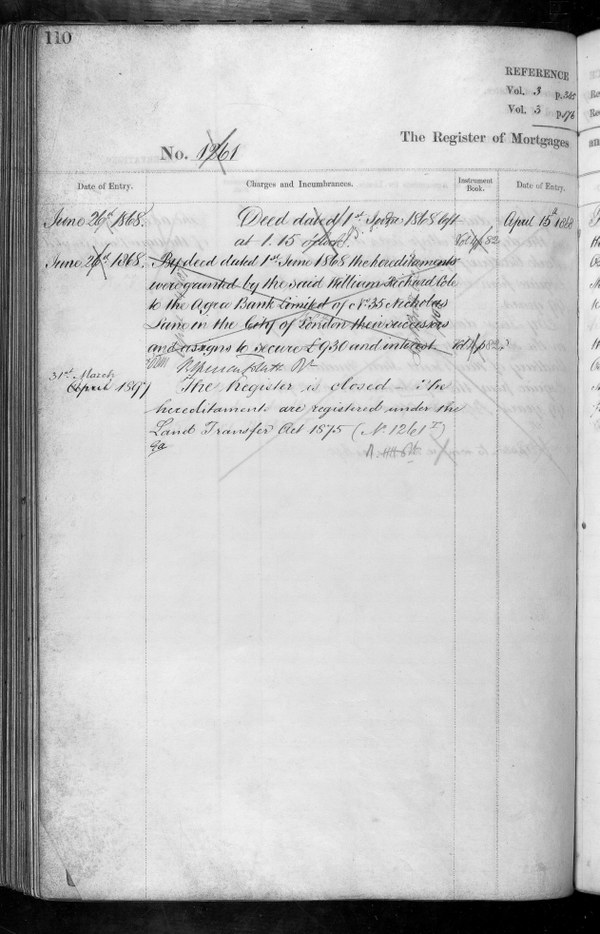 110
REFERENCE
Vol. 3 p.
Vol. 3 p. 176
The Register of Mortgages
No. 1261
Date of Entry.
Charges and Incumbrances.
Instrument Book.
Date of Entry.
June 26th 1868.
Deed dated 1st 1868 left
April 15th 1868
at 1.15
82
June 26th 1868.
By deed dated 1st June 1868 the hereditaments
were granted by the said William Richard Cole
to the Agra Bank Limited of No. 35 Nicholas
Lane in the City of London their successors
and assigns to secure £930 and interest
82
31st March
April 1897
The Register is closed - the
hereditaments are registered under the
Land Transfer Act 1875 (No. 1261